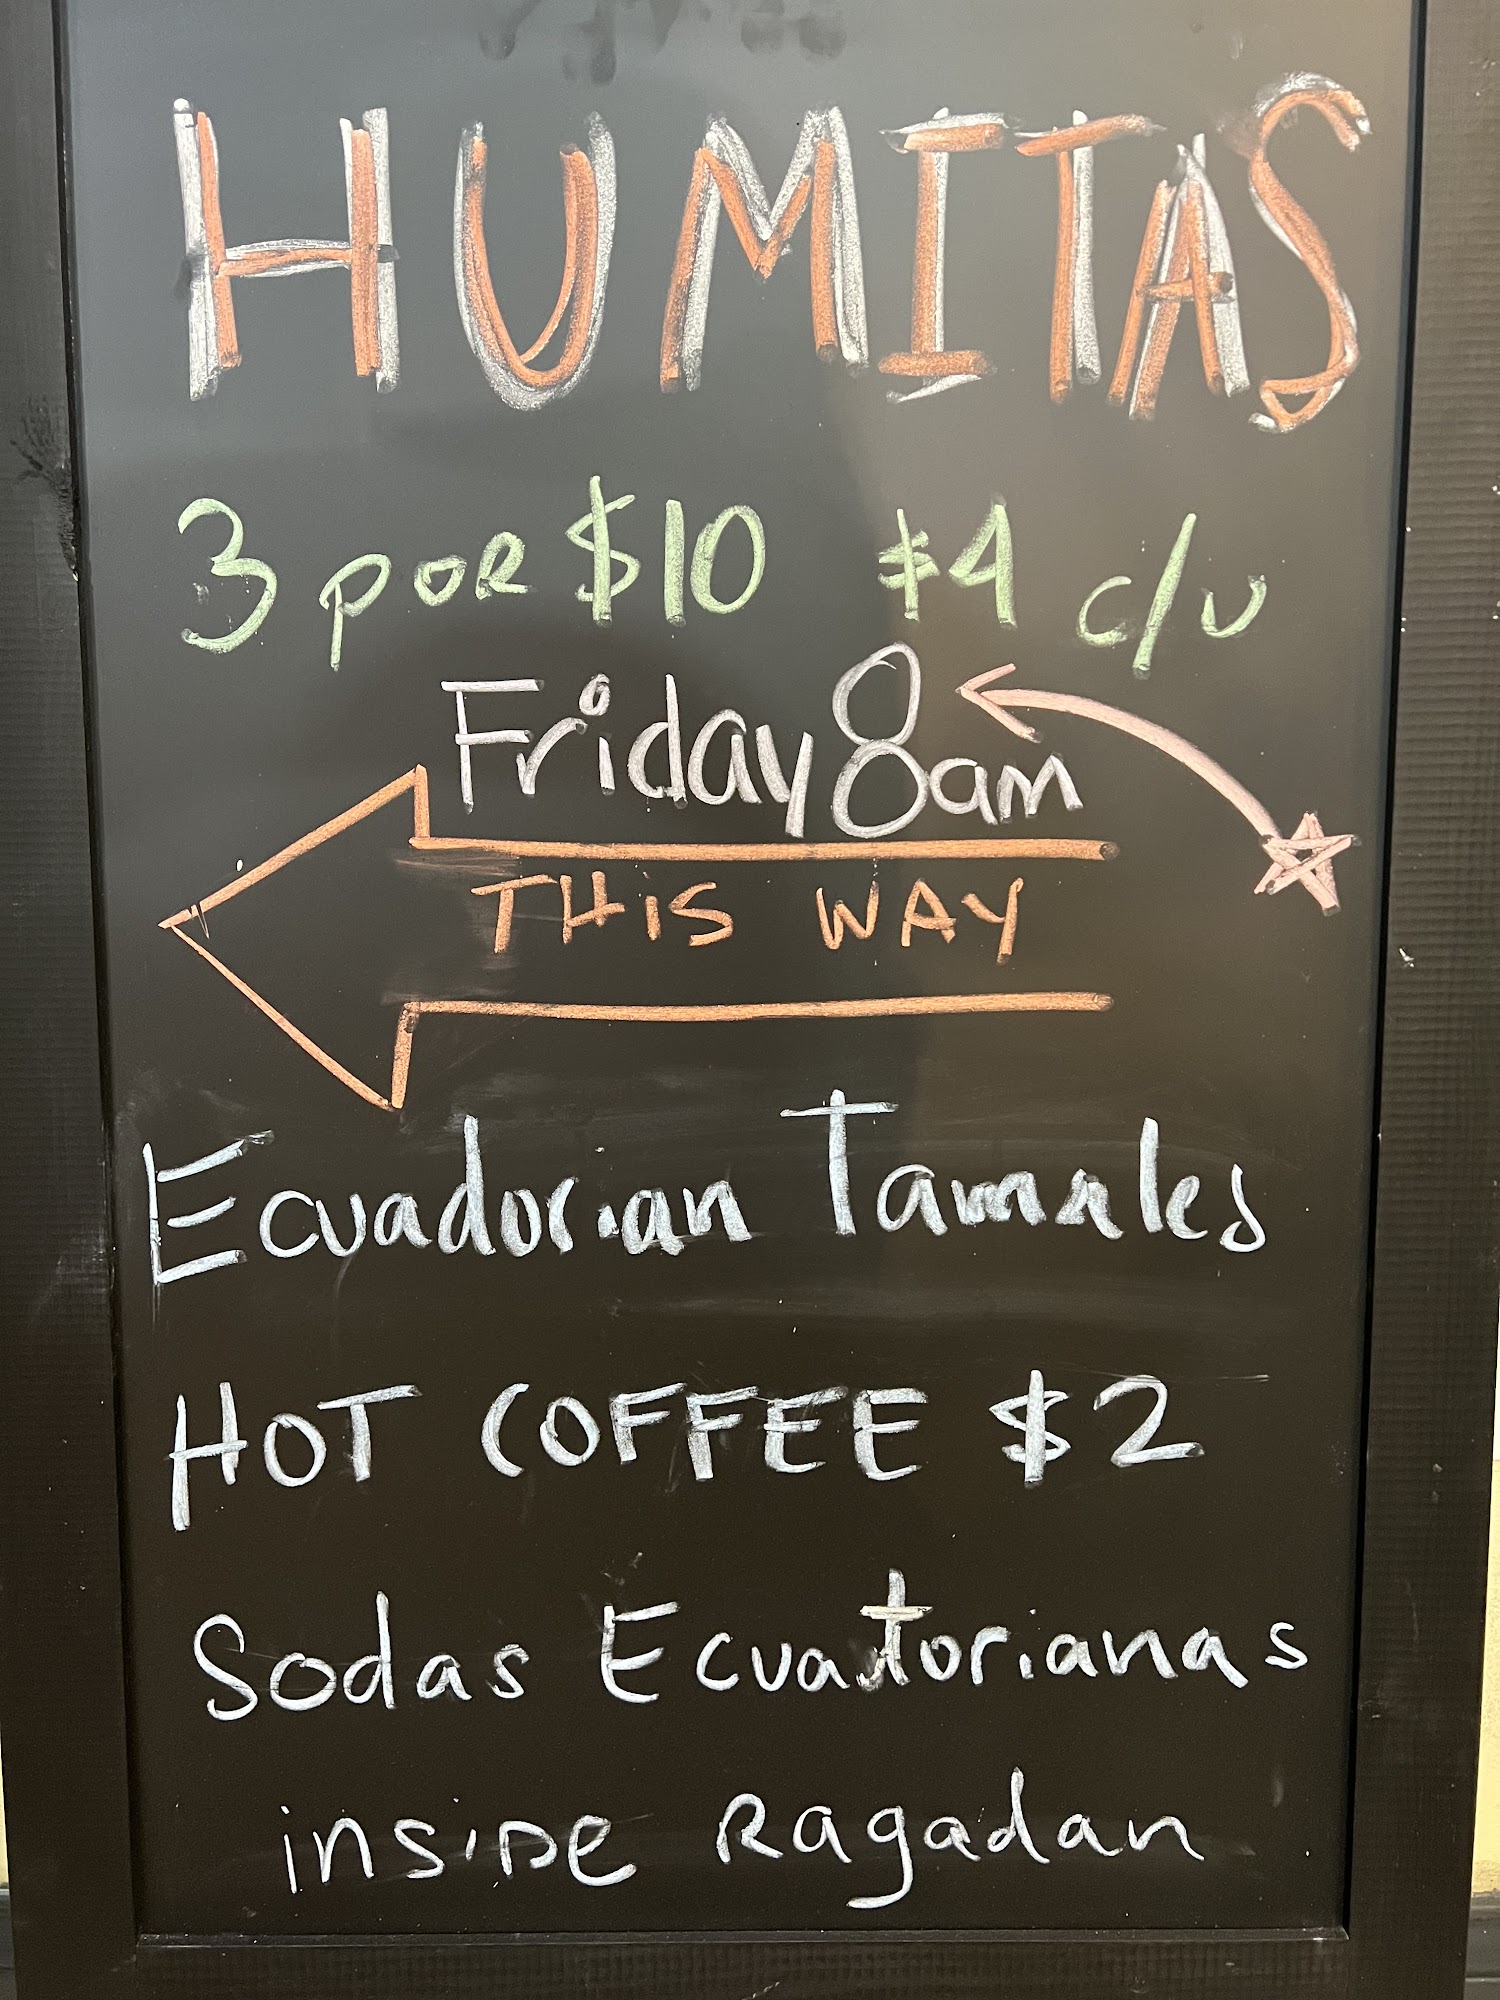 HUMITAS
3 POR $10 $4 c/u
Friday 8am
THIS WAY
Ecuadorian Tamales
HOT COFFEE $2
Sodas Ecuatorianas
inside Ragadan